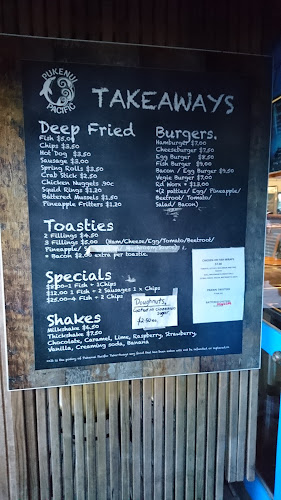 PUKENUI
PACIFIC
TAKEAWAYS
Deep Fried
Fish $5.00
Chips $3.50
Hot Dog $3.50
Sausage $3.00
Spring Rolls $3.50
Crab Stick $2.50
Chicken Nuggets .90c
Squid Rings $1.20
Battered Mussels $1.50
Pineapple Fritters $1.20
Burgers.
Hamburger $7.00
Cheeseburger $7.50
Egg Burger $8.50
Fish Burger $9.00
Bacon / Egg Burger $9.50
Vegie Burger $7.00
Rd Worx + $13.00
+(2 patties/ Egg/ Pineapple/
Beetroot/ Tomato/
Salad/ Bacon)
Toasties
2 Fillings $4.50
3 Fillings $5.00 (Ham/Cheese/Egg/Tomato/Beetroot/
Pineapple/
+ Bacon $2.00 extra per toastie.
Specials
1 Fish + 1Chips
$12.00 1 Fish + 2 Sausages 1 x Chips
$25.00 4 Fish + 2 Chips
Doughnuts
Cinnamon
Sugar
$2.50
Shakes
Milkshake $6.50
Thickshake $7.50
Chocolate, Caramel, Lime, Raspberry, Strawberry,
Vanilla, Creaming soda, Banana